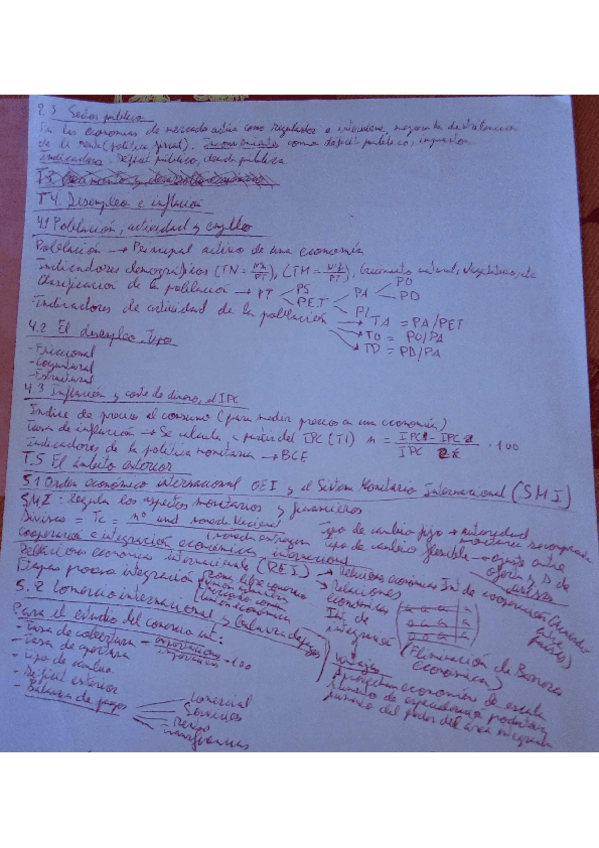 2.3 Sector público
En las economías de mercado actúa como regulador e interviene, mejora la distribución
de la renta (política fiscal). como déficit público, impuestos
Indicadores: Déficit público, deuda pública
T3.
T4. Desempleo e inflación
4.1 Población, actividad y empleo
Población → Principal activo de una economía
Indicadores demográficos (TN = ), (TM = ), Crecimiento natural, vegetativo, etc
Clasificación de la población → PT PS PET PA PI PO PD
Indicadores de actividad de la población
TA = PA/PET
TO = PO/PA
TD = PD/PA
4.2 El desempleo. Tipos
- Friccional
- Coyuntural
- Estructural
4.3 Inflación y coste de dinero, el IPC
Índice de precios al consumo (para medir precios en una economía)
Tasa de inflación → Se calcula a partir del IPC (TI) · 100
Indicadores de la política monetaria → BCE
T.5 El ámbito exterior
5.1 Orden económico internacional OEI y el Sistema Monetario Internacional (SMI)
SMI: Regula los aspectos monetarios y financieros
Divisas = Tc = nº unid moneda Nacional
1 moneda extranjera
Tipo de cambio fijo → autoridad monetaria
Tipo de cambio flexible → ajuste entre oferta y D de divisas
Cooperación e integración económica internacional
Relaciones económicas internacionales (REI)
→ Relaciones económicas In. de cooperación
→ Relaciones económicas Int. de integración
(Eliminación de Barreras económicas)
Etapas proceso integración
Zona libre comercio
Unión aduanera
Mercado común
Unión económica
Ventajas
Aprovechar economías de escala
Aumento de
Aumento del poder del área integrada
5.2 Comercio internacional y balanza de pagos
Para el estudio del comercio int:
- Tasa de cobertura = exportaciones / importaciones · 100
- Tasa de apertura
- Tipo de cambio
- Déficit exterior
- Balanza de pagos
Comercial
Servicios
Rentas
Transferencias